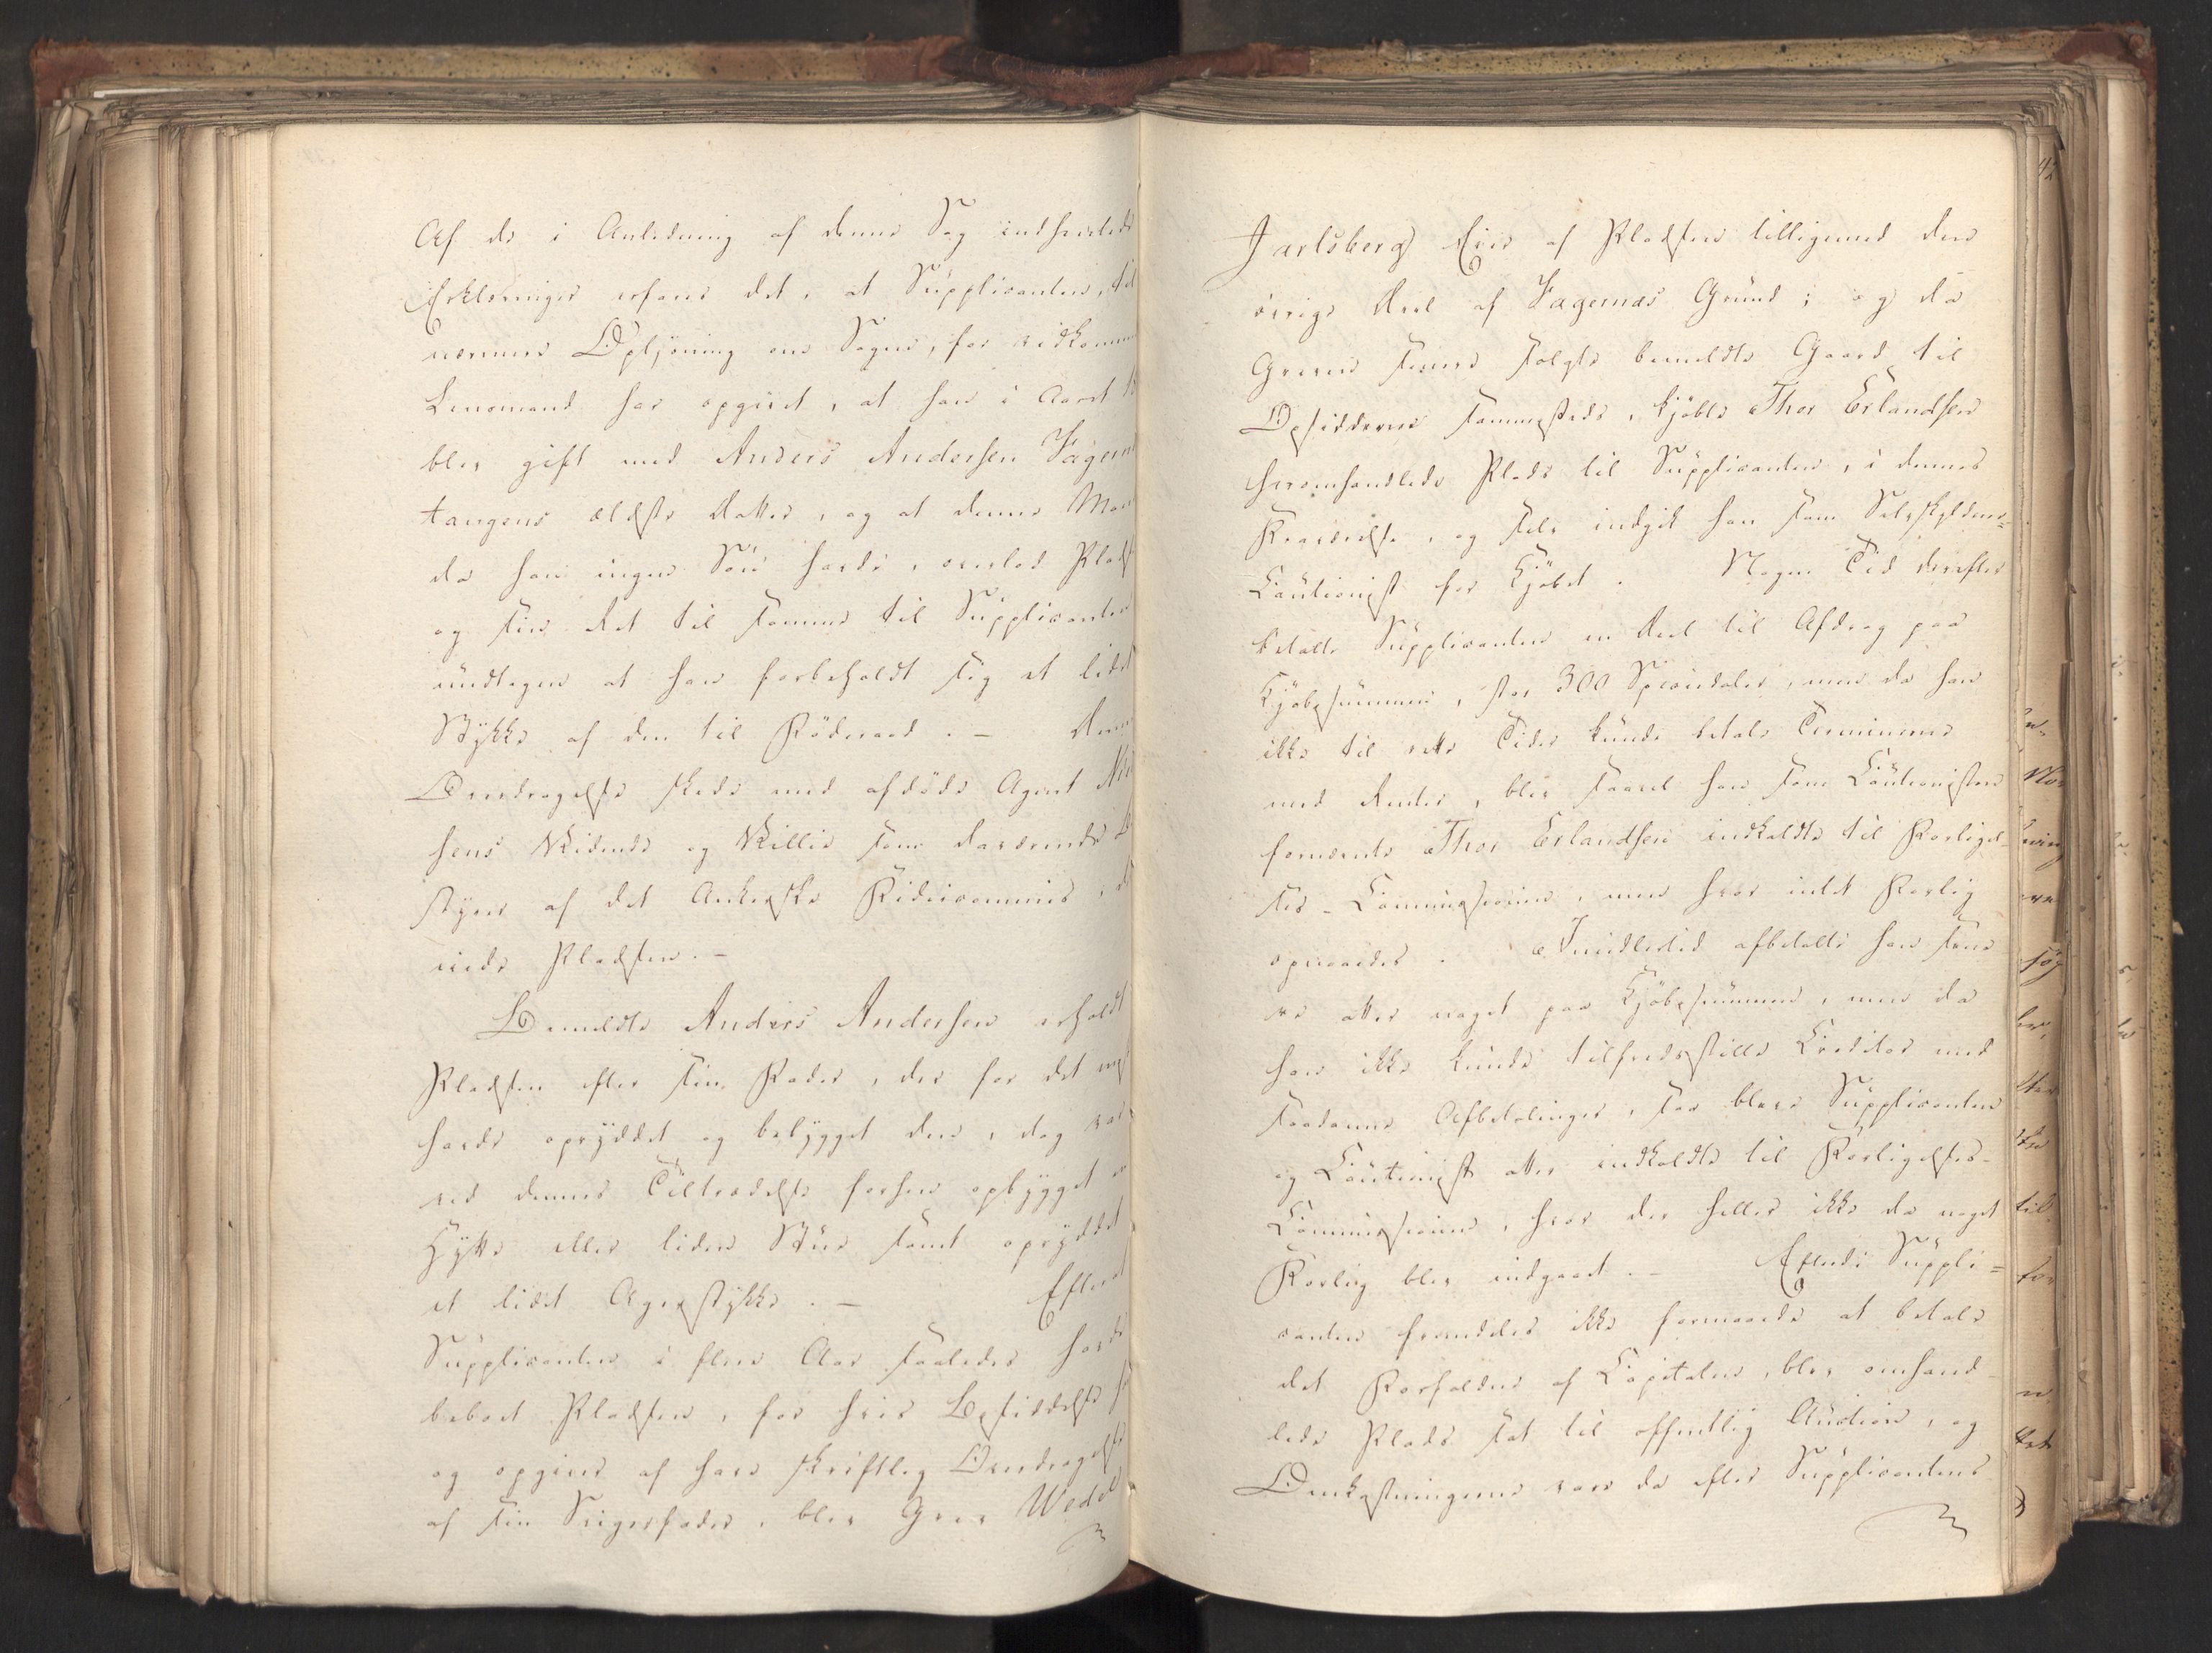 Af de i Anledning af denne Sag indhentede
Erklæringer erfares det, at Supplicanten, til
nærmere Oplysning om Sagen, for vedkomm
Lensmand har opgivet, at han i Aaret 1
blev gift med Anders Andersen Fagern
tangens ældste Datter, og at denne Man
da han ingen Søn havde, overlod Plads
og sin Ret til samme til Supplicanten
undtagen at han forbeholdt sig et lidet
Stykke af den til Föderaad. – Denn
Overdragelse skede med afdöde Agent Nie
sens Vidende og Villie som daværende B
styrer af det Ankerske Fideicommis, d
eiede Pladsen. –
Bemeldte Anders Andersen erholdt
Pladsen efter sin Fader, der for det mest
havde opryddet og bebygget den, dog var
ved dennes Tiltrædelse forhen opbygget en
Hytte eller liden Stue samt opryddet
et lidet Agerstykke. – Efterat
Supplicanten i flere Aar saaledes havde
beboet Pladsen, for hvis Besiddelse
og opgives at have skriftlig Overdragelse
af sin Svigerfader, blev Grev Wedel
Jarlsberg Eier af Pladsen tilligemed den
övrige Deel af Fagernæs Grund; og da
Greven siden solgte bemeldte Gaard til
Opsidderne sammesteds, kjöbte Thor Erlandsen
heromhandlede Plads til Supplicanten, i dennes
Fraværelse, og selv indgik han som Selvskyldner=
Cautionist for Kjöbet. Nogen Tid derefter
betalte Supplicanten en Deel til Afdrag paa
Kjöbesummen, stor 300 Speciedaler, men da han
ikke til rette Tider kunde betale Terminerne
med Renter, blev saavel han som Cautionisten
fornævnte Thor Erlandsen indkaldte til Forligel-
ses-Commissionen, men hvor intet Forlig
opnaaedes. Imidlertid afbetalte han sene
re atter noget paa Kjöbesummen, men da
han ikke kunde tilfredsstille Creditor med
saadanne Afbetalinger, saa bleve Supplicanten
og Cautionist atter indkaldte til Forligelses-
Commissionen, hvor der heller ikke da noget
Forlig blev indgaaet. – Efterdi Suppli=
canten fremdeles ikke formaaede at betale
det Forfaldne af Capitalen, blev omhand-
lede Plads sat til offentlig Auction, og
Omkostningerne vare da efter Supplicantens